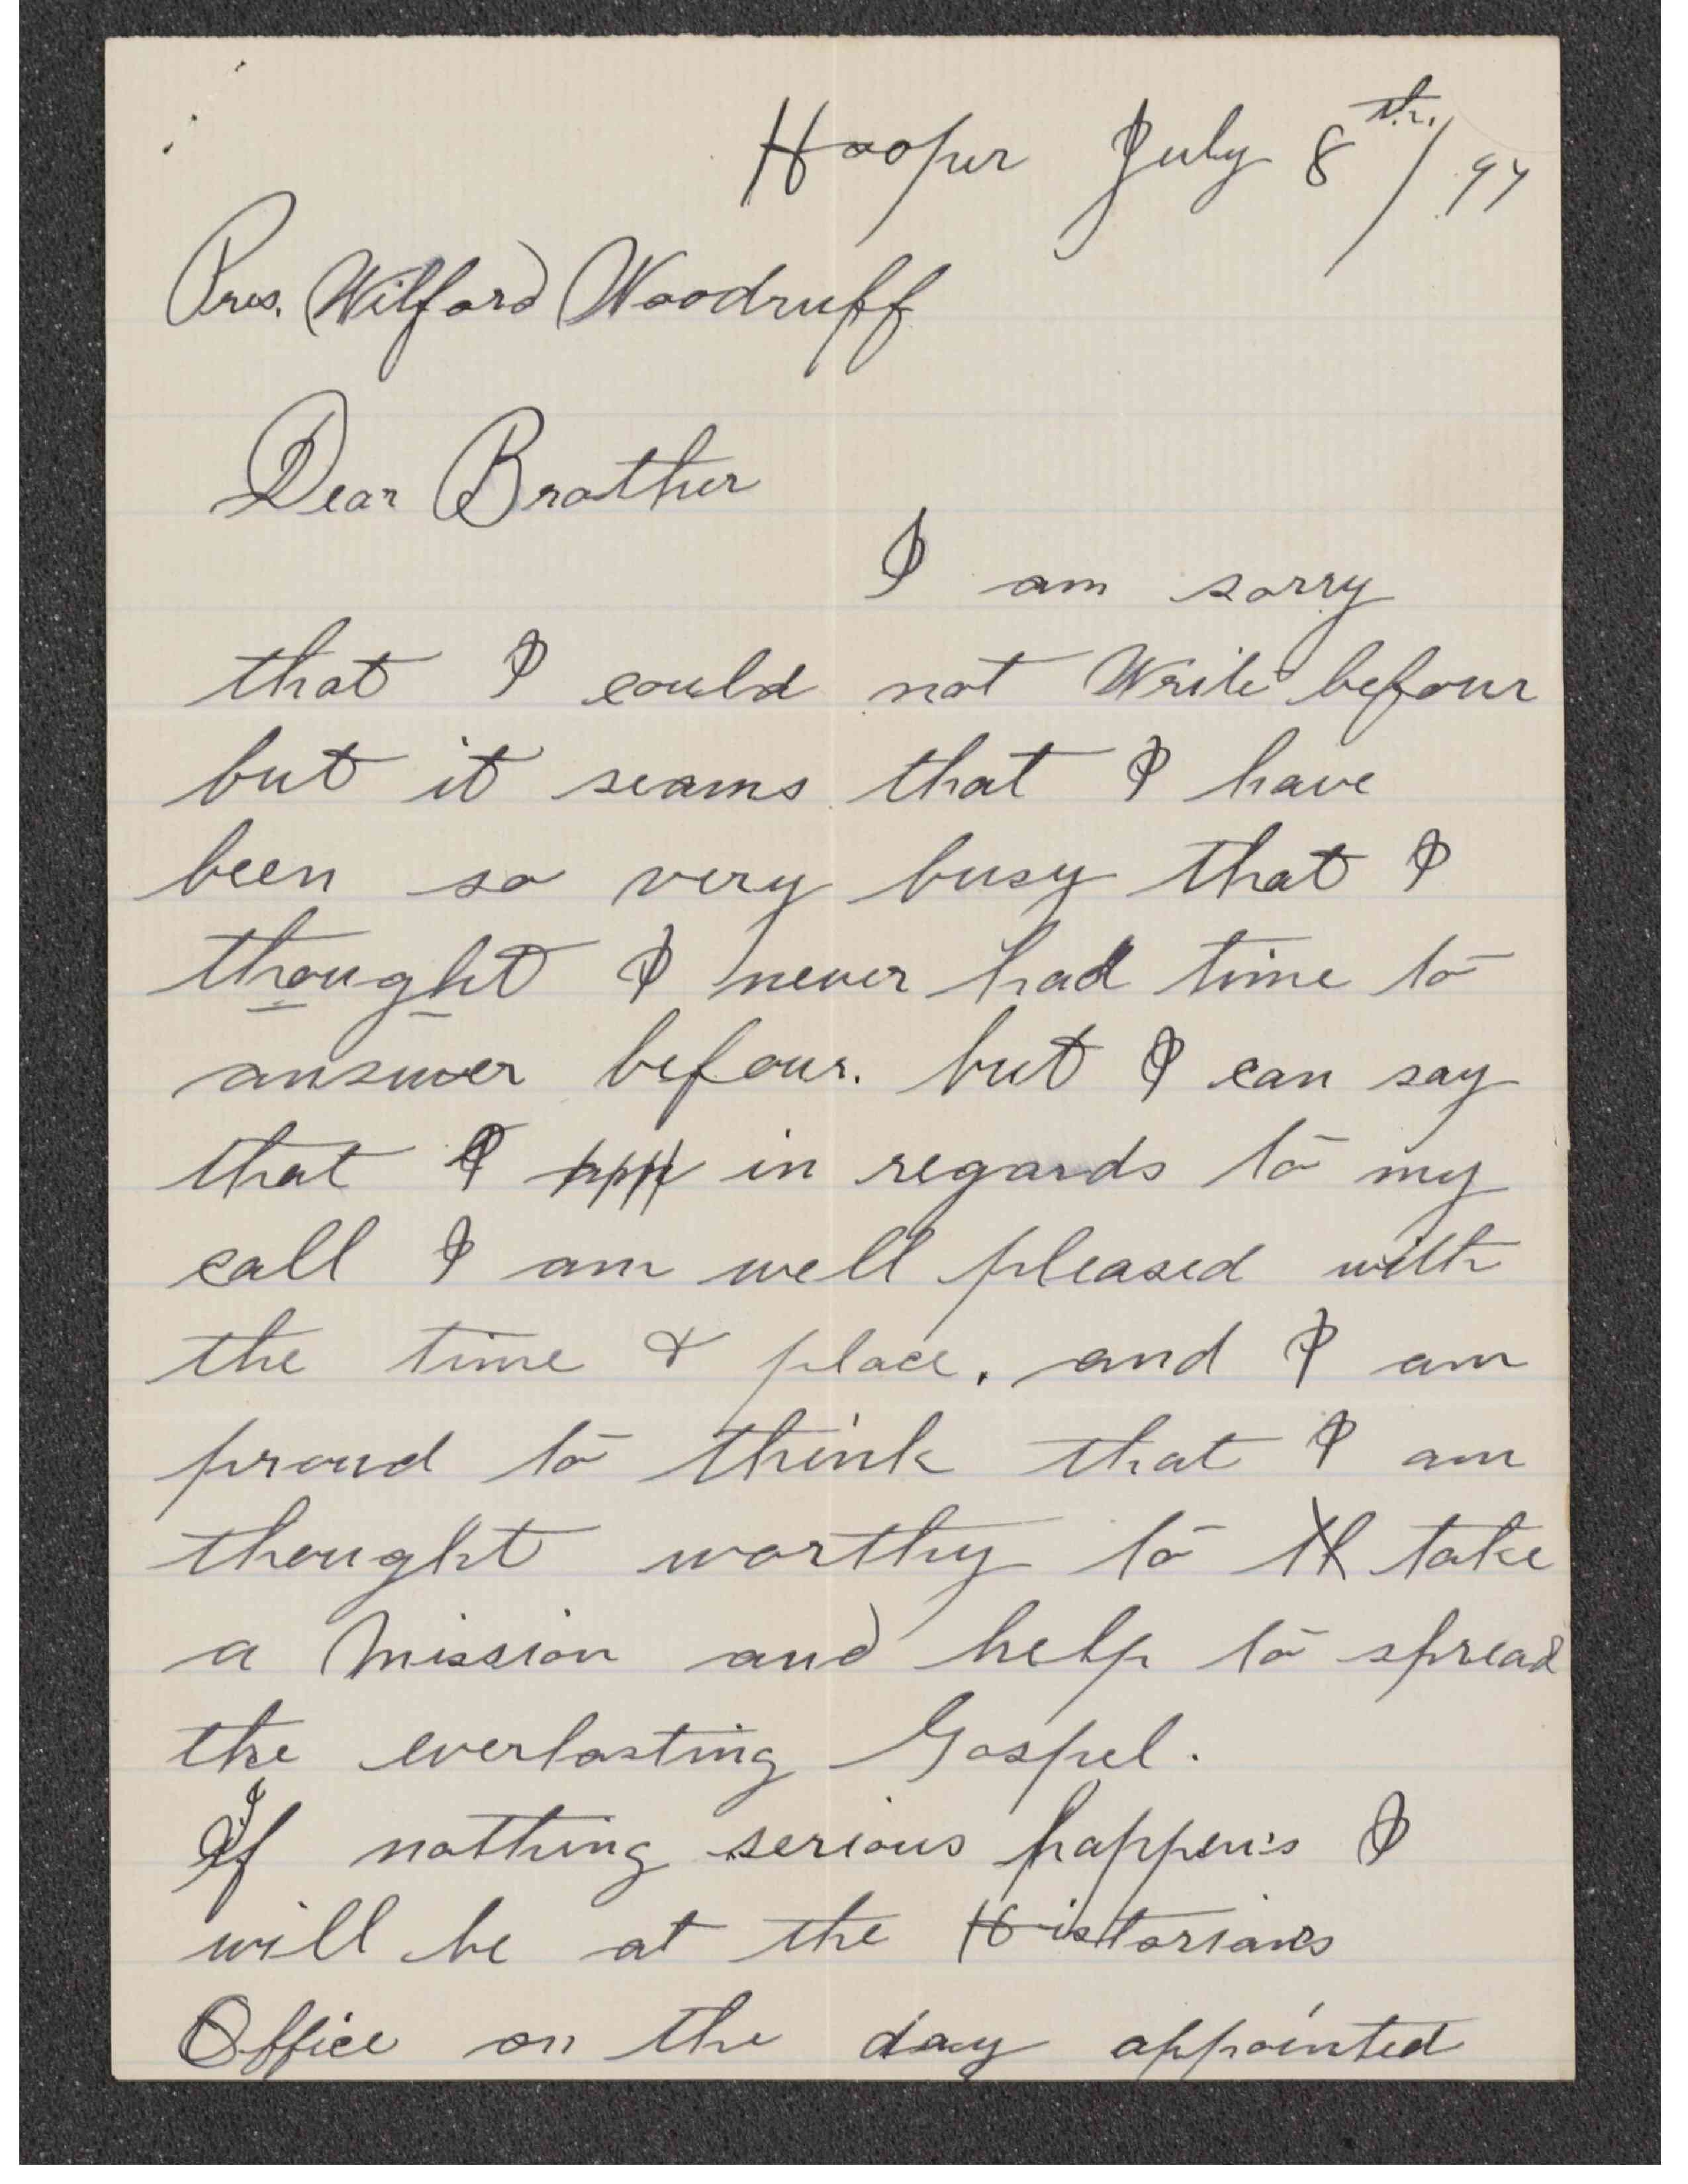 Hooper July 8th./97
Pres. Wilford Woodruff
Dear Brother
I am sorry
that I could not Write befour
but it seams that I have
been so very busy that I
thought I never had time to
answer befour. but I can say
that I in regards to my
call I am well pleased with
the time & place. and I am
proud to think that I am
thought worthy to th take
a Mission and help to spread
the everlasting Gospel.
If nothing serious happen's I
will be at the Historians
Office on the day appointed